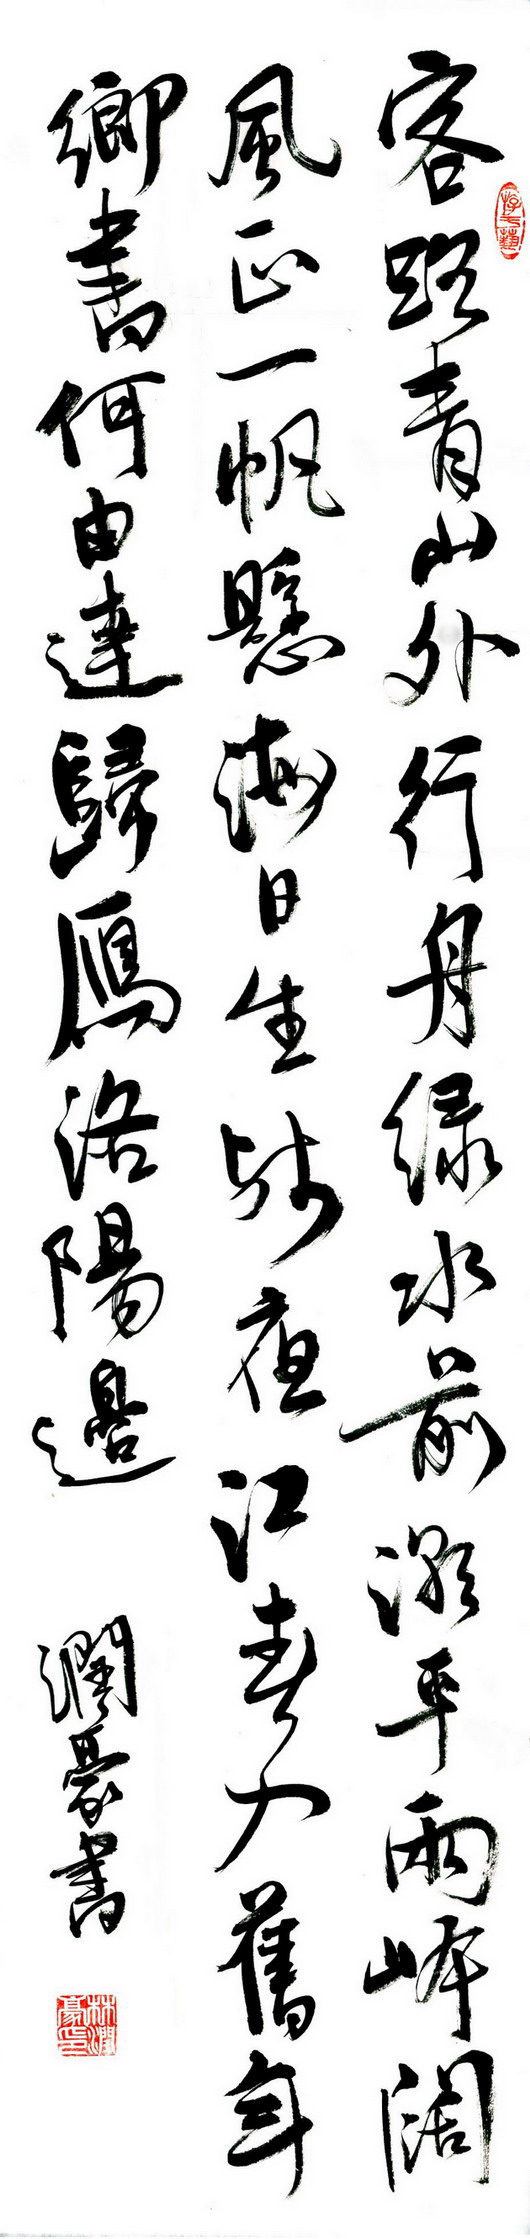 客路青山外行舟綠水前潮平兩岸闊
風正一帆懸海日生殘夜江春入舊年
鄉書何由達歸鴈洛陽邊
潤豪書
林潤豪印